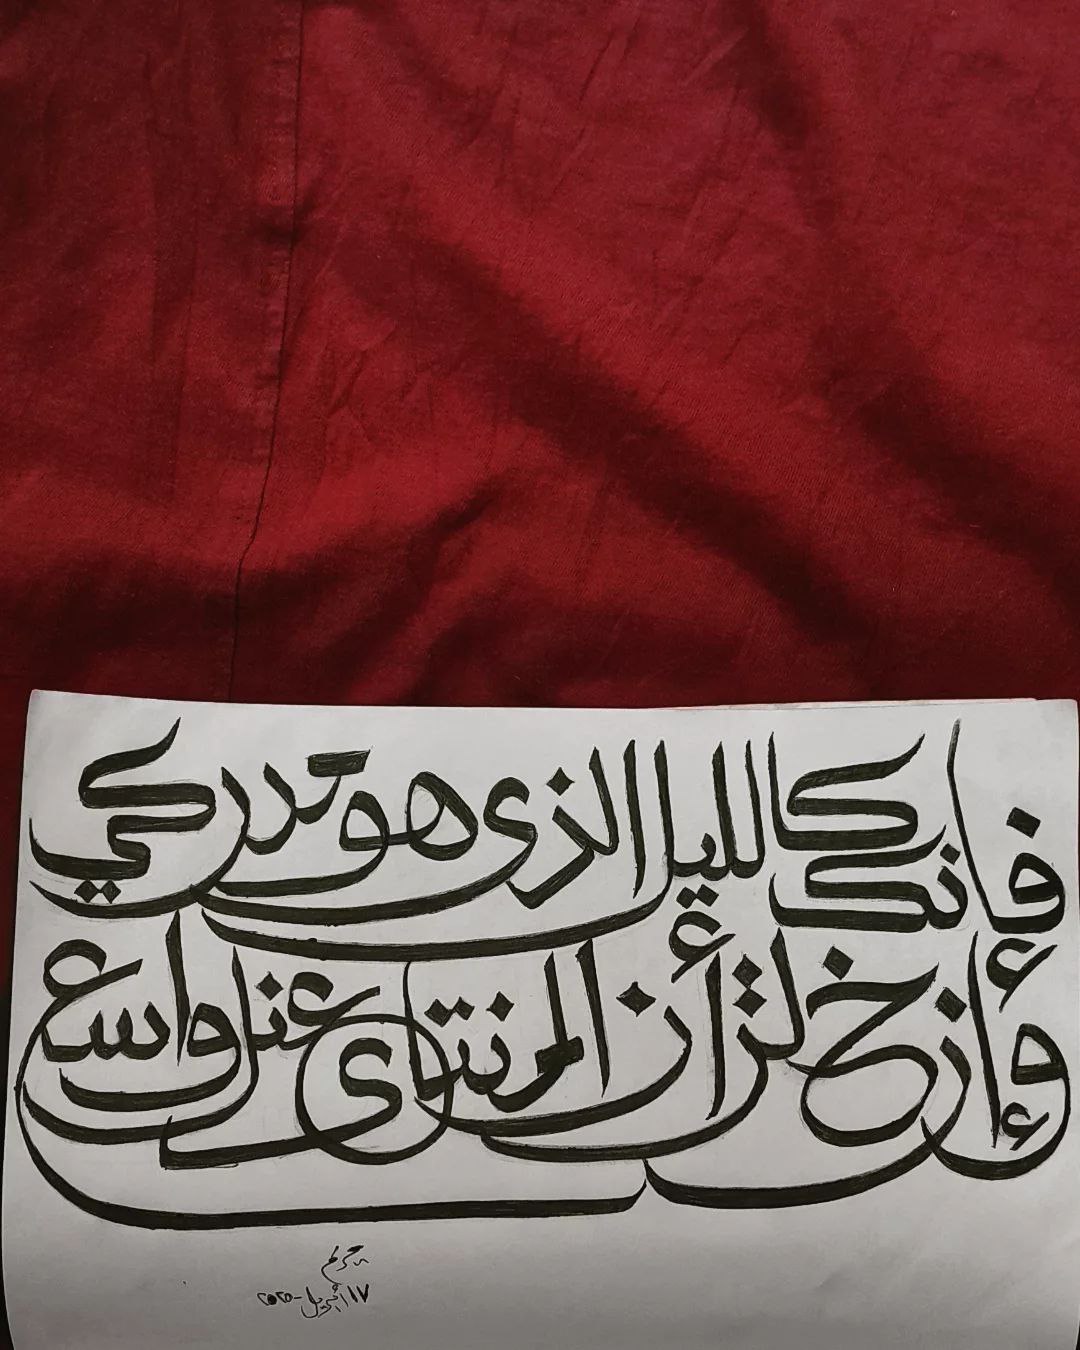 فإنك كالليل الذى هو مدركي
وإن خلت أن المنتاى عنك واسع
مريم
١٧ أبريل-٢٠٢٠